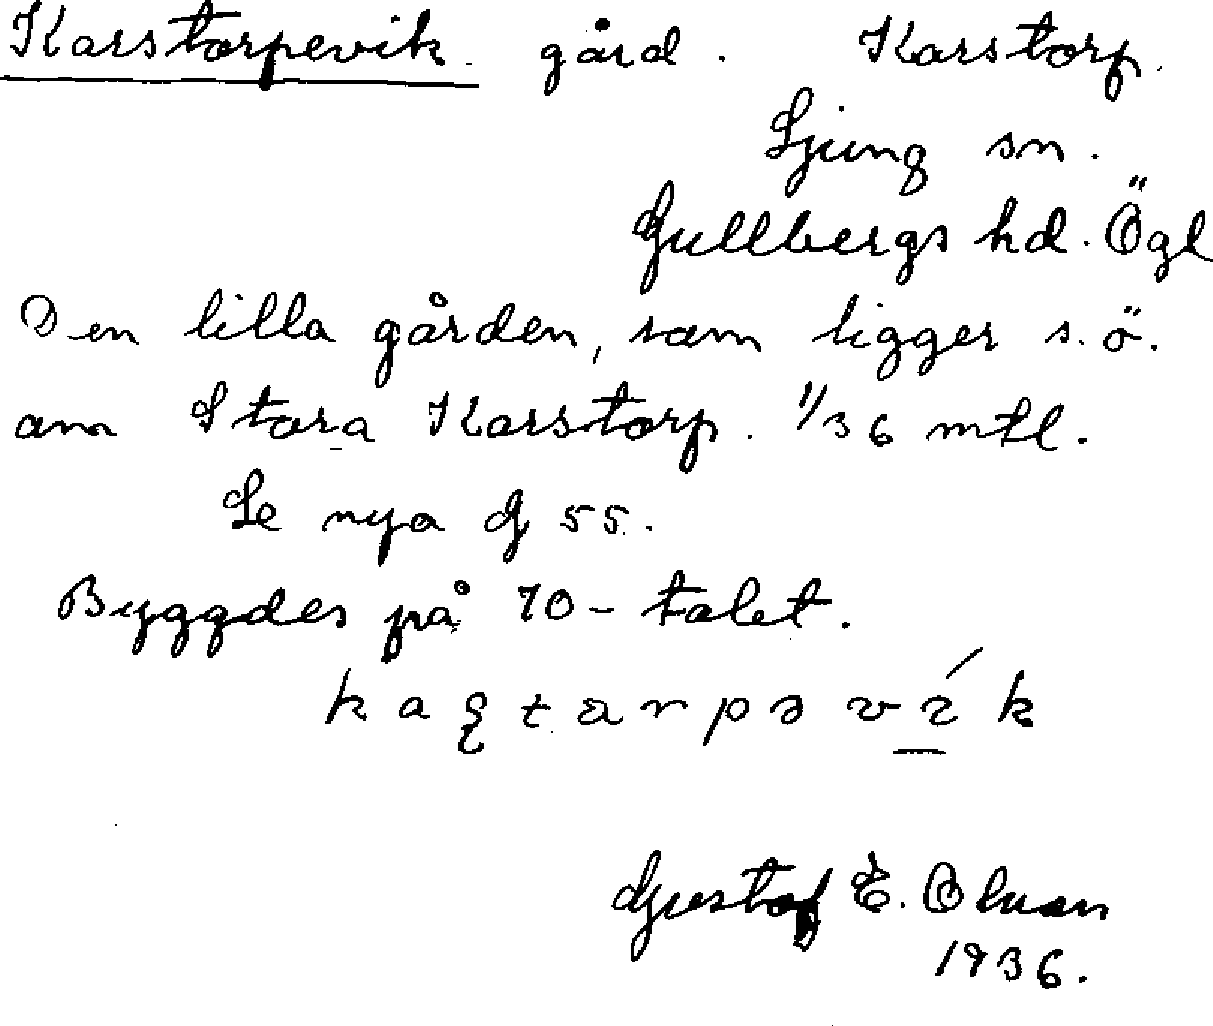 Karstorpevik gård. Karstorp.
Ljung sn.
Gullbergs hd. Ögl
Den lilla gården, som ligger s.ö.
om Stora Karstorp. 1/36 mtl.
Se nya G 55.
Byggdes på 70-talet.
Gustaf E. Olsson
1936.